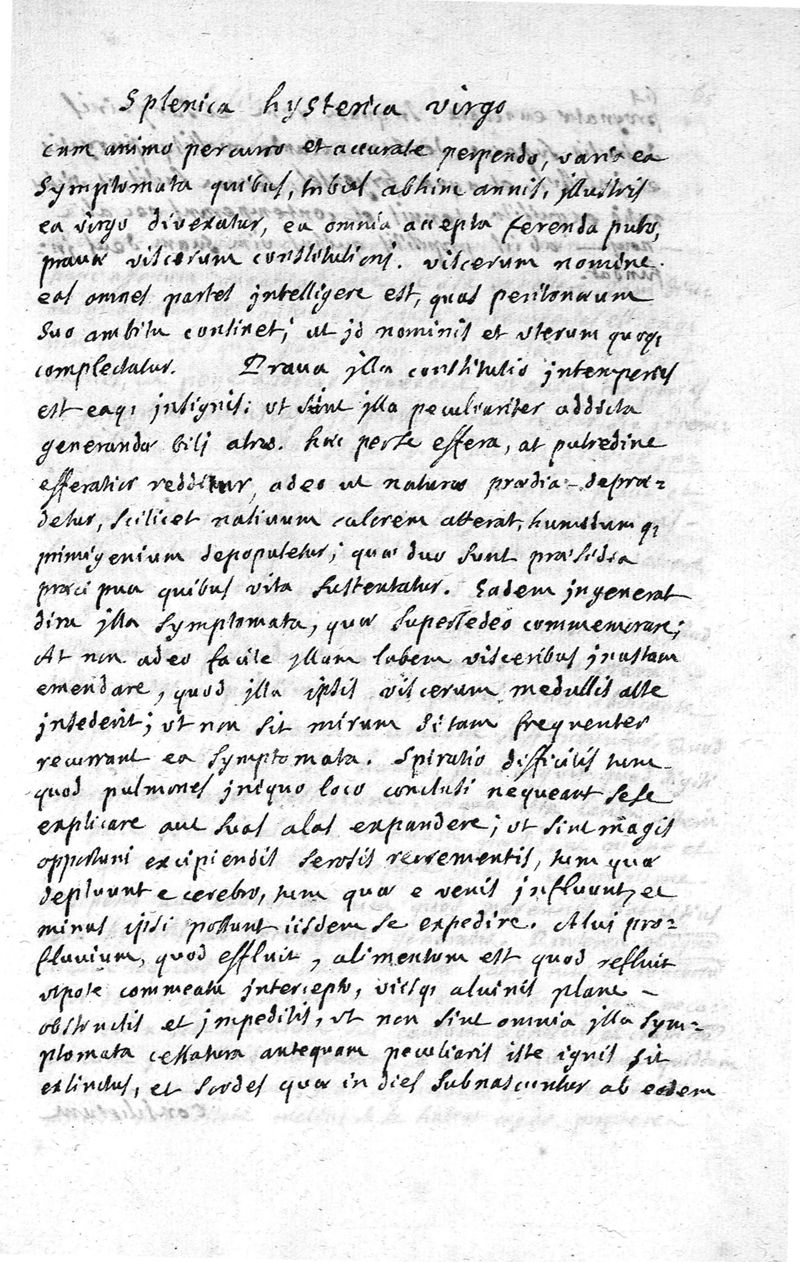 Splenica hysterica virgo
cum animo percurro et accurate perpendo, varia ea
symptomata quibus, tribus abhinc annis, illustris
ea virgo divexatur, ea omnia accepta ferenda puto,
pravæ viscerum constitutioni. viscerum nomine
eas omnes partes intelligere est, quas peritonæum
suo ambitu continet; ut id nominis et uterum quoq;
complectatur. Prava illa constitutio intemperies
est eaq; insignis; ut sint illa peculiariter addicta
generandæ bili atræ. hæc per se effera, at putredine
efferatior redditur, adeo ut naturæ prædia depræ=
detur, scilicet nativum calorem atterat, humidum q;
primigenium depopuletur; quæ duo sunt præsidia
præcipua quibus vita sustentatur. Eadem ingenerat
dira illa symptomata, quæ supersedeo commemorare;
At non adeo facile illam labem visceribus inustam
emendare, quod illa ipsis viscerum medullis alte
insederit; ut non sit mirum si tam frequenter
recurrant ea symptomata. Spiratio difficilis tum
quod pulmones iniquo loco conclusi nequeant sese
explicare aut suas alas expandere; ut sint magis
opportuni excipiendis serosis recrementis, tum quæ
depluunt e cerebro, tum quæ e venis influunt, et
minus ipsi possunt iisdem se expedire. Alui pro=
fluvium, quod effluit, alimentum est quod refluit
utpote commeatu intercepto, viisq; alvinis plane
obstructis et impeditis, ut non sint omnia illa sym=
ptomata cessatura antequam peculiaris iste ignis sit
extinctus, et sordes quæ in dies subnascuntur ab eodem